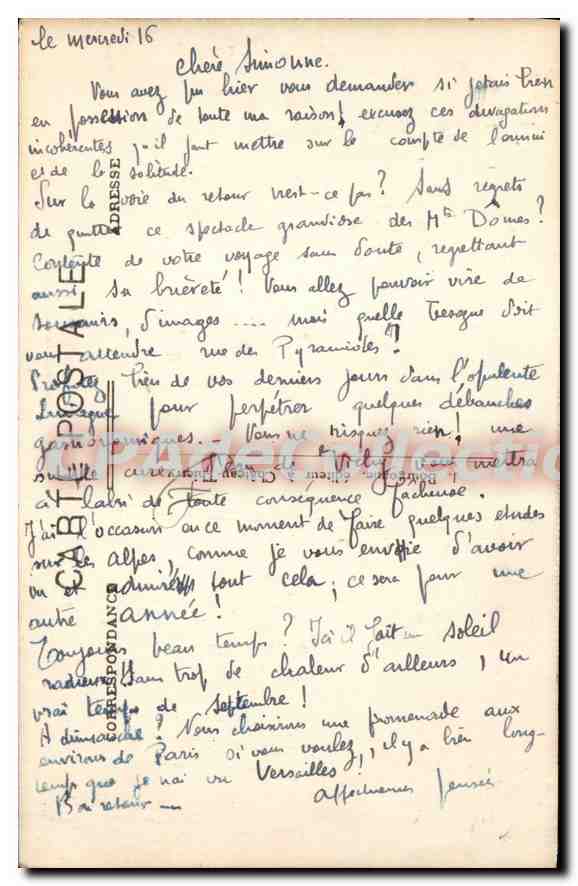 le mercredi 16
chère Simonne.
Vous avez pu hier vous demander si j'étais bien
en possession de toute ma raison! excusez ces divagations
incohérentes qu'il faut mettre sur le compte de l'ennui
et de la solitude.
Sur la voie du retour n'est-ce pas? Sans regrets
de quitter ce spectacle grandiose des Mts Dômes?
Contente de votre voyage sans doute, regrettant
aussi sa brièveté! Vous allez pouvoir vivre de
souvenirs, d'images .... mais quelle besogne doit
vous attendre rue des Pyramides!
Profitez bien de vos derniers jours dans l'opulente
pour perpétrer quelques débauches
gastronomiques. - Vous ne risquez rien! une
cure de Vichy vous mettra
à l'abri de toute conséquence fâcheuse.
J'ai l'occasion en ce moment de faire quelques études
sur les alpes, comme je vous envie d'avoir
vu et admiré tout cela; ce sera pour une
autre année!
Toujours beau temps? Ici il fait un soleil
radieux sans trop de chaleur d'ailleurs, un
vrai temps de septembre!
A dimanche? Nous choisirons une promenade aux
environs de Paris si vous voulez, il y a bien long-
temps que je n'ai vu Versailles!
Bon retour — affectueuses pensées
CARTE POSTALE
ADRESSE
CORRESPONDANCE
CPADeCollection